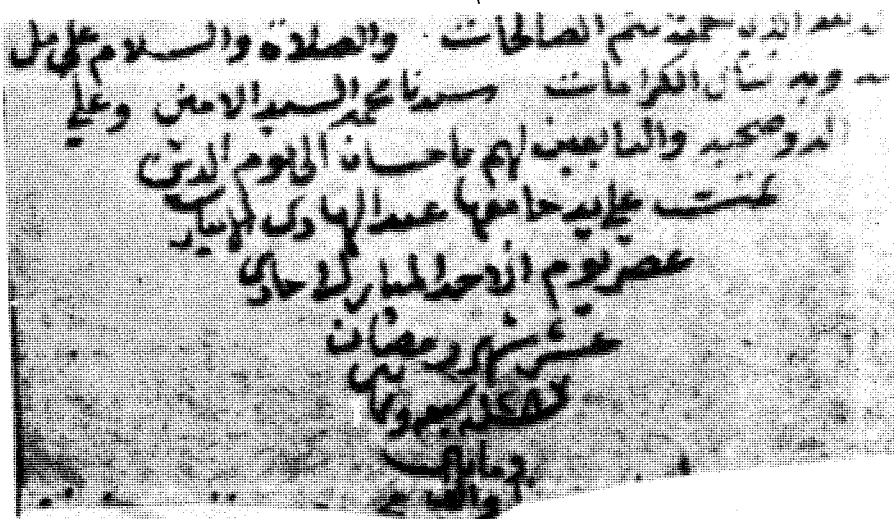 الذي بنعمته تتم الصالحات والصلاة والسلام على من
وبه تنال الكرامات سيدنا محمد السيد الامين وعلى
اله وصحبه والتابعين لهم باحسان الى يوم الدين
تمت على يد جامعها عبد الهادى
عصر يوم الاحد المبارك حادى
عشر شهر رمضان
وثمانين
ومايتين
والف